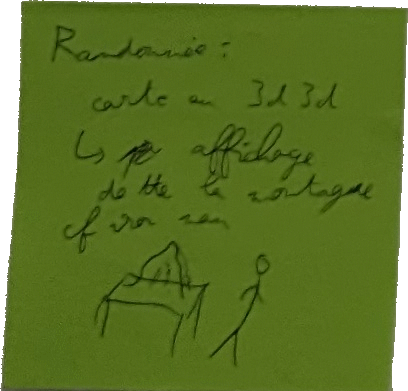 Randonnée :
carte en 3d 3d
↳ affichage
de tte la montagne
cf